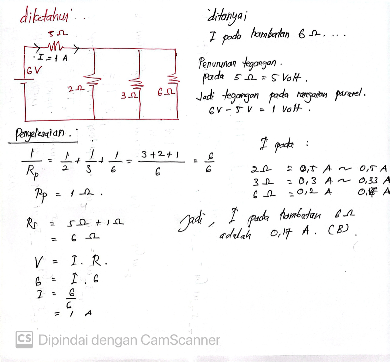 diketahui :
5 Ω
I = 1 A
6V
2 Ω
3 Ω
6 Ω
Penyelesaian.
1/Rp = 1/2 + 1/3 + 1/6 = 3+2+1/6 = 6/6
Rp = 1 Ω.
Rs = 5 Ω + 1 Ω
= 6 Ω
V = I. R.
6 = I. 6
I = 6/6
= 1 A
ditanyai
I pada hambatan 6 Ω. ....
Penurunan tegangan.
pada 5 Ω = 5 Volt.
Jadi tegangan pada rangkaian paralel.
6V - 5 V = 1 Volt.
I pada :
2 Ω = 0,5 A ~ 0,5 A
3 Ω = 0,3 A ~ 0,33 A
6 Ω = 0,2 A
Jadi, I pada hambatan 6 Ω
adalah 0,17 A. (B)
CS Dipindai dengan CamScanner